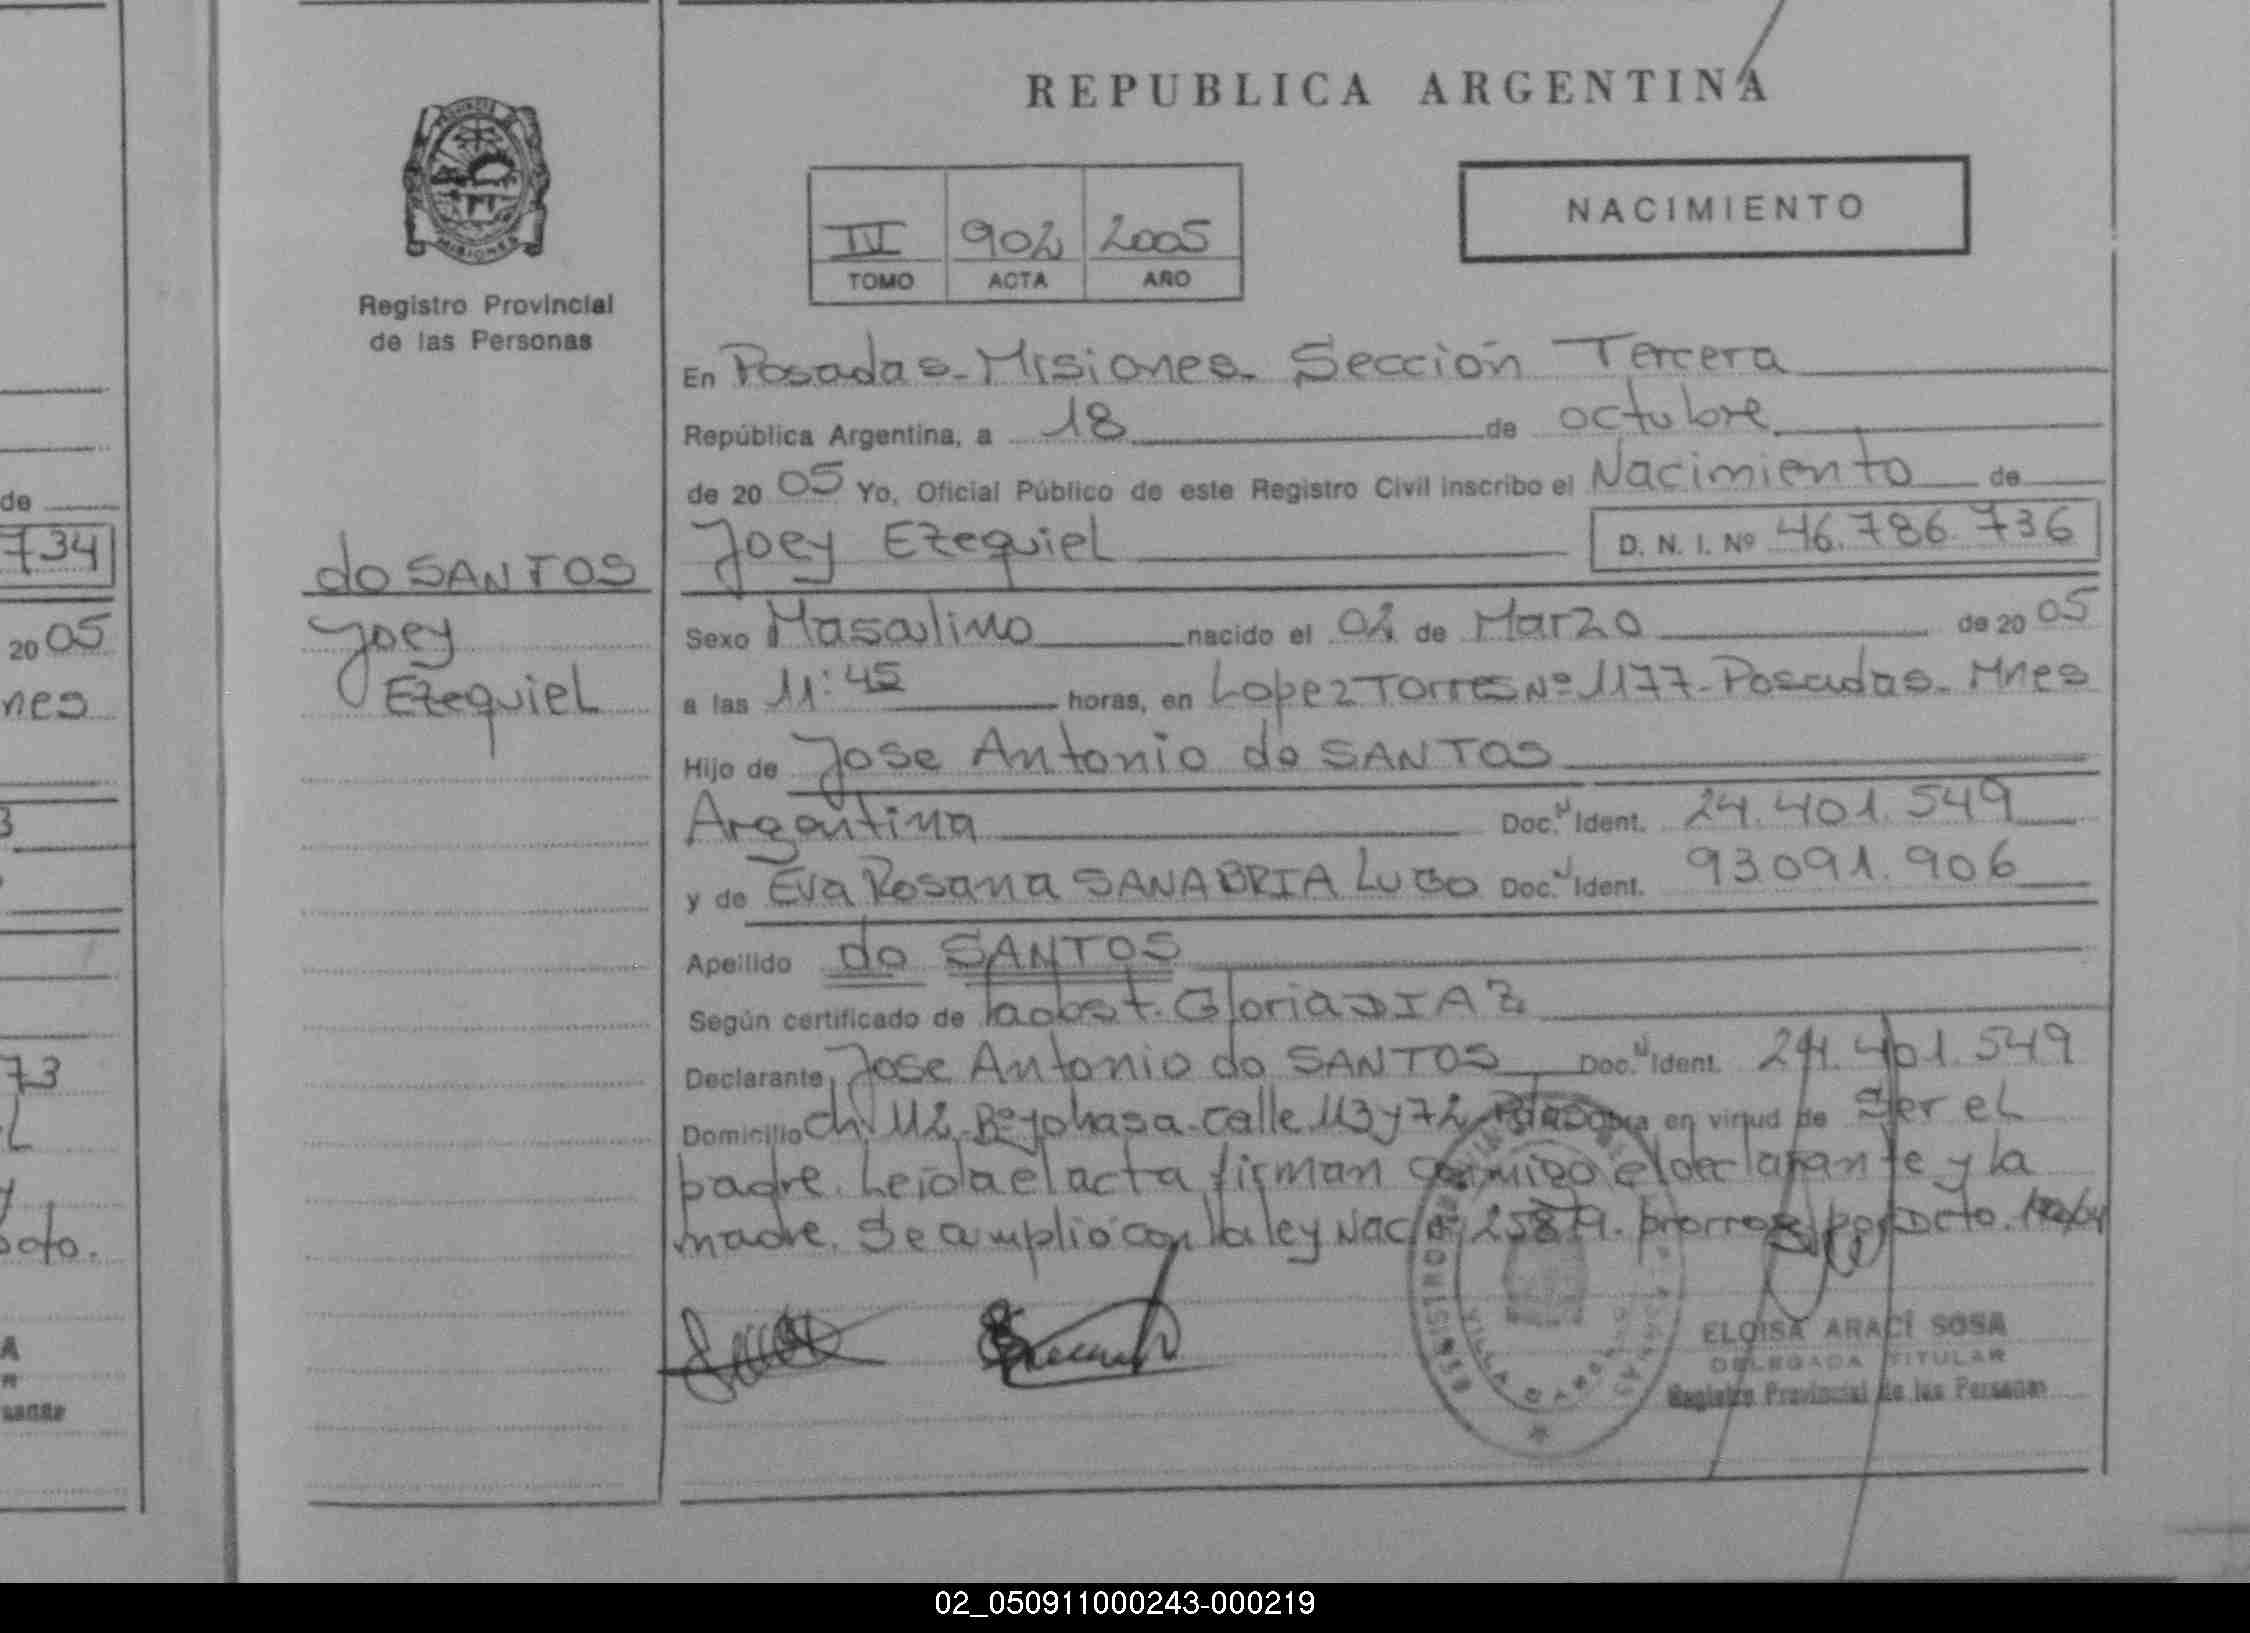 REPUBLICA ARGENTINA
PROVINCIA DE
MISIONES
Registro Provincial
de las Personas
NACIMIENTO
902 2005
TOMO ACTA AÑO
do SANTOS
Joey
Ezequiel
En Posadas - Misiones - Sección Tercera
República Argentina, a 18 de octubre
de 20 05 Yo, Oficial Público de este Registro Civil inscribo el Nacimiento de
Joey Ezequiel D. N. I. Nº 46.786.736
Sexo Masculino nacido el 02 de Marzo de 20 05
a las 11:45 horas, en Lopez Torres Nº 1177 - Posadas - Mnes
Hijo de Jose Antonio do SANTOS
Argentina Doc. Ident. 24.401.549
y de Eva Rosana SANABRIA LUGO Doc. Ident. 93.091.906
Apellido do SANTOS
Según certificado de Gloria DIAZ
Declarante Jose Antonio do SANTOS Doc. Ident. 24.401.549
Domicilio ch. 112 - Bº Yohasa - calle 113 y 72 en virtud de Ser el
padre. Leida el acta firman conmigo el declarante y la
madre. Se amplió con la ley Nac. 25819. por Dcto.
ELOISA ARACÍ SOSA
DELEGADA TITULAR
Registro Provincial de las Personas
de
734
20 05
nes
3
73
L
y
Dcto.
A
R
02_050911000243-000219